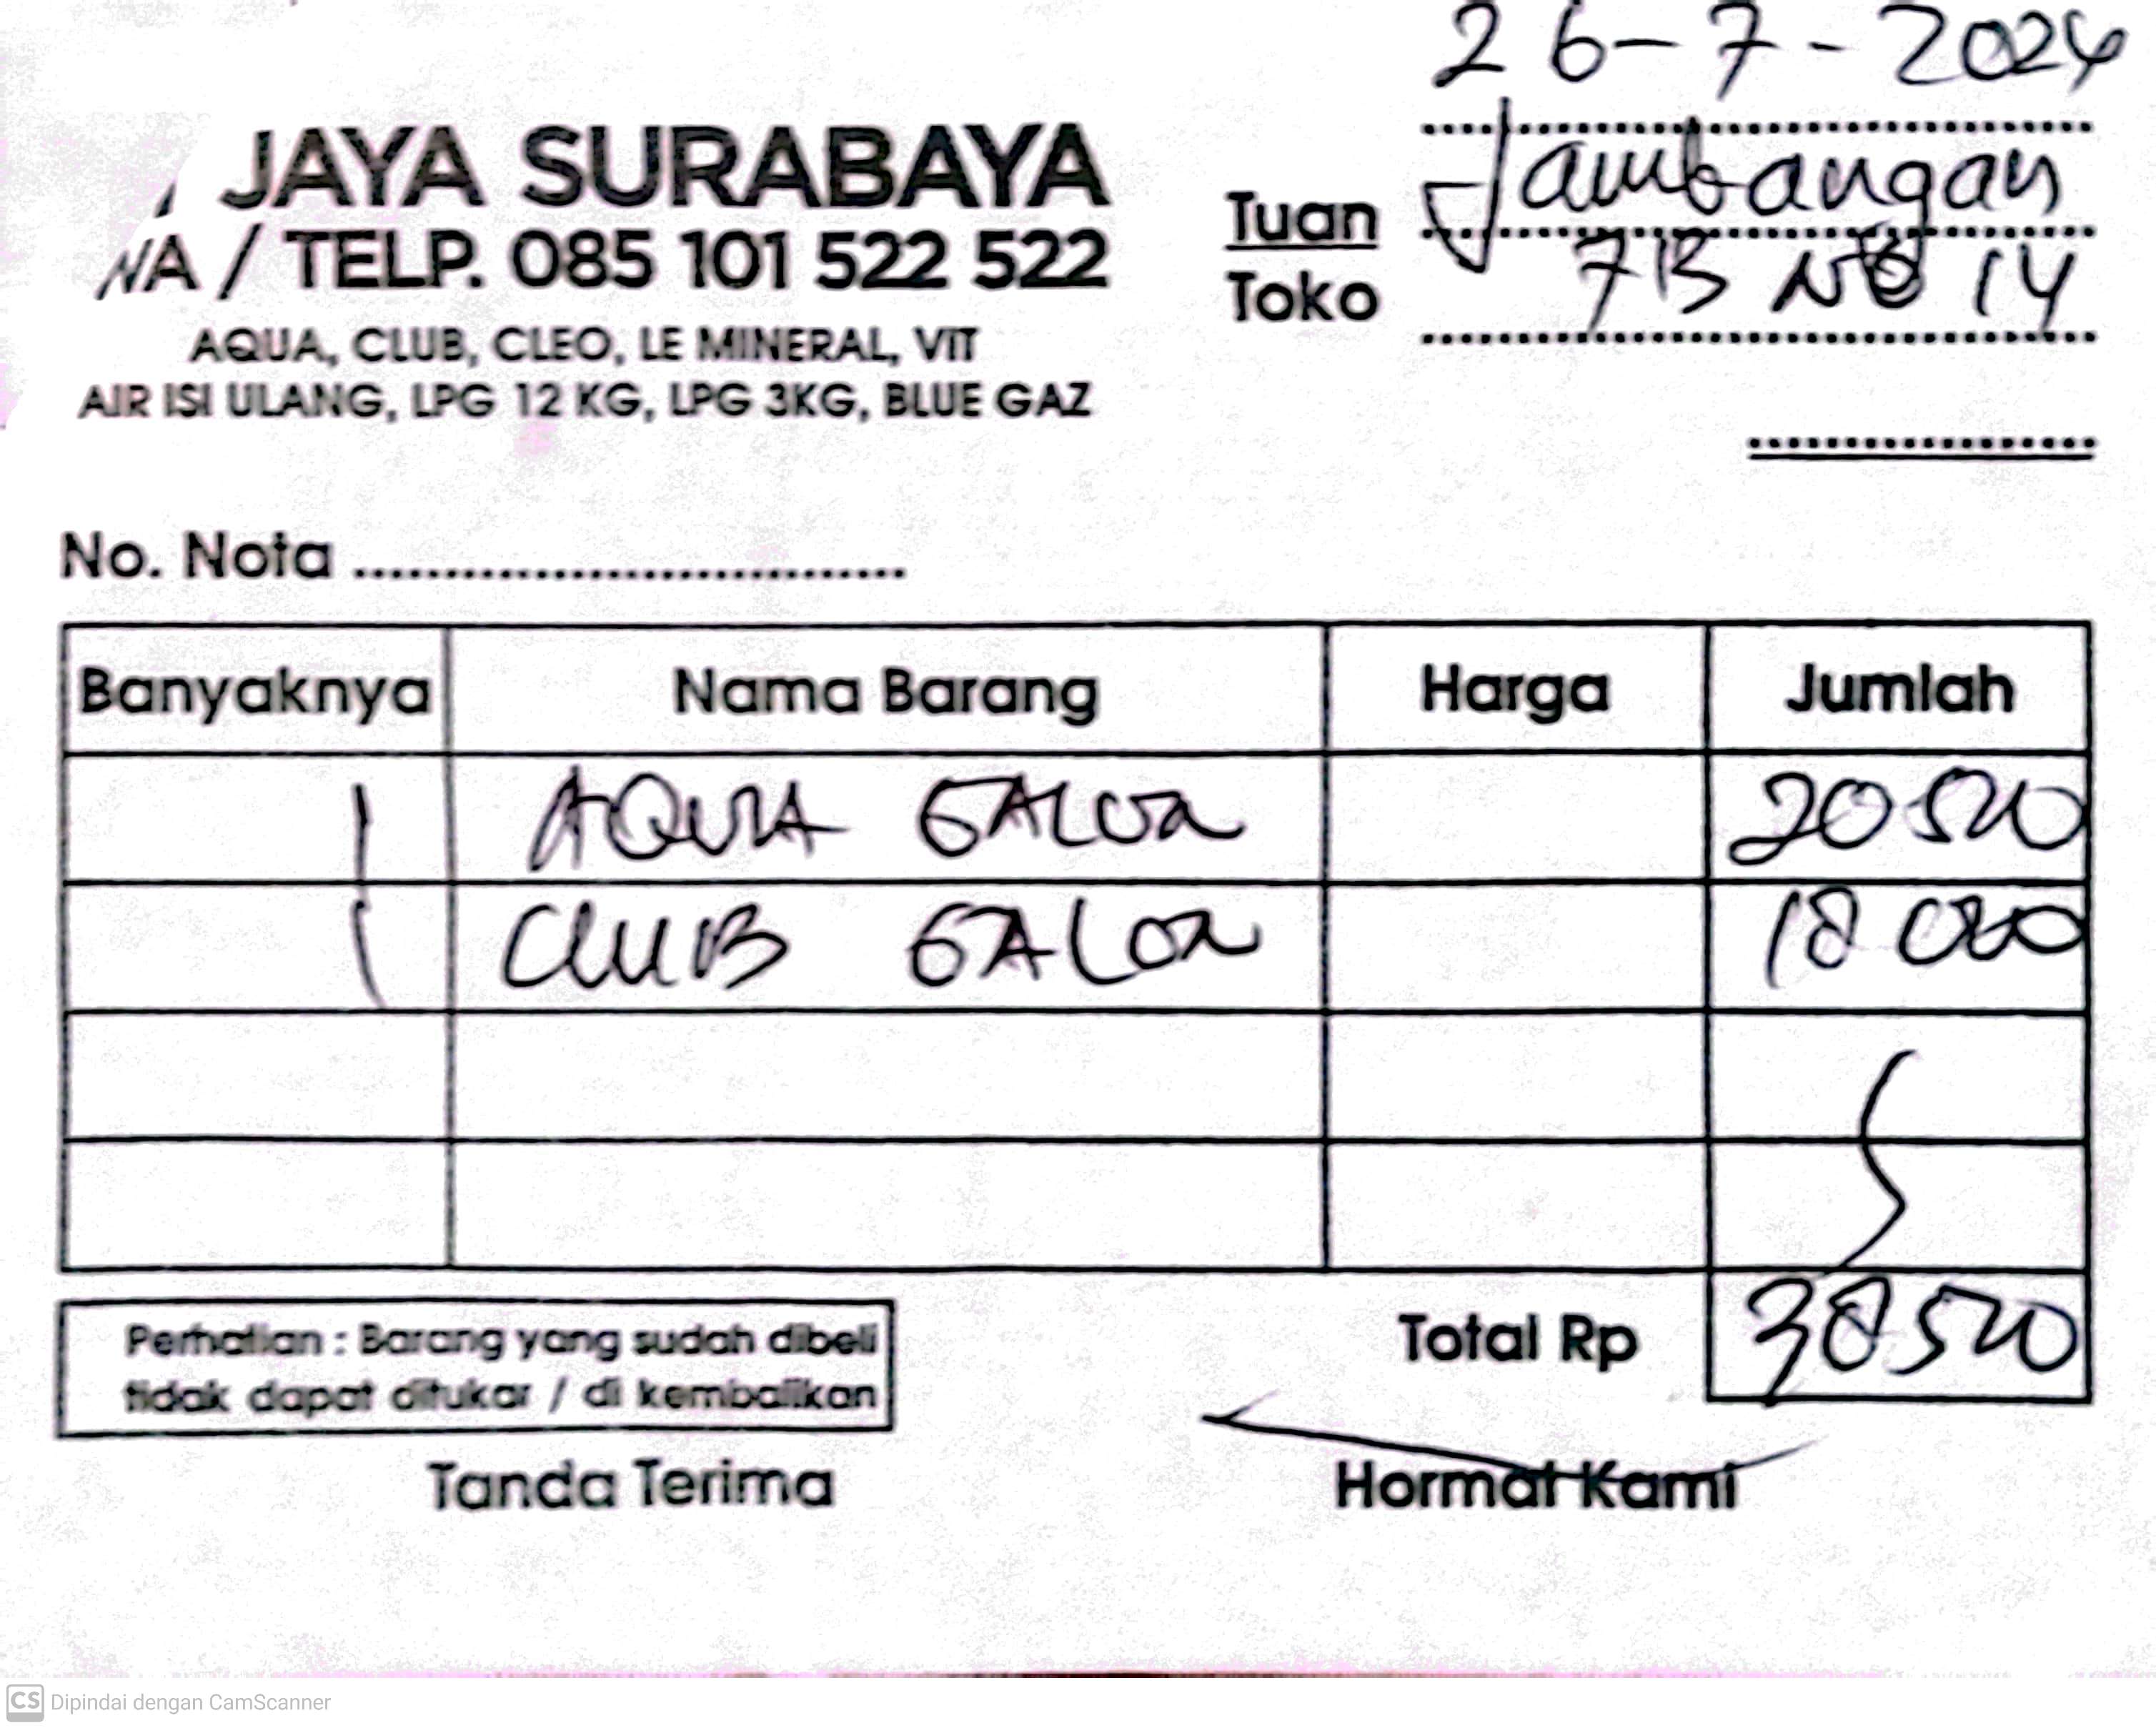 26-7-2024
JAYA SURABAYA
/ TELP. 085 101 522 522
AQUA, CLUB, CLEO, LE MINERAL, VIT
AIR ISI ULANG, LPG 12 KG, LPG 3KG, BLUE GAZ
Tuan Jambangan
Toko 7B No 14
No. Nota
Banyaknya Nama Barang Harga Jumlah
1 AQUA GALON 20 500
1 CLUB GALON 18 000
Total Rp 38 500
Perhatian : Barang yang sudah dibeli
tidak dapat ditukar / di kembalikan
Tanda Terima Hormat Kami
CS Dipindai dengan CamScanner